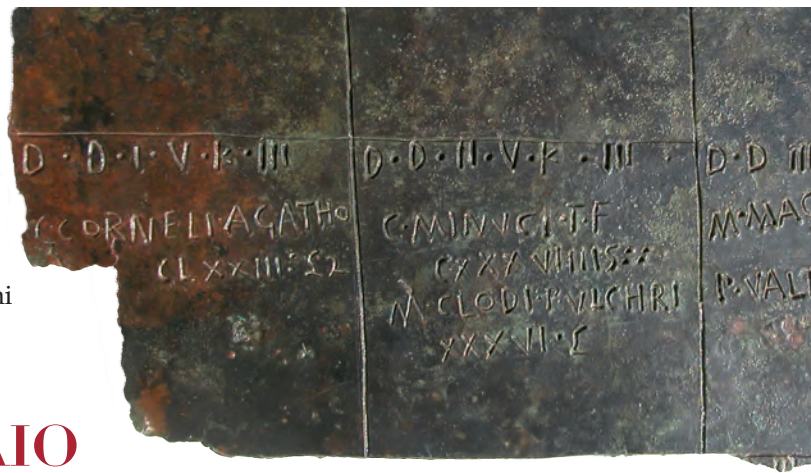 D · D · I · V · K · III
C CORNELI · AGATHO
CLXXIII
D · D · II · V · K · III
C · MINVCI · T · F
M · CLODI · PVLCHRI
XXXVII · £
D · D III
M · MAG
P · VALE
ni
AIO